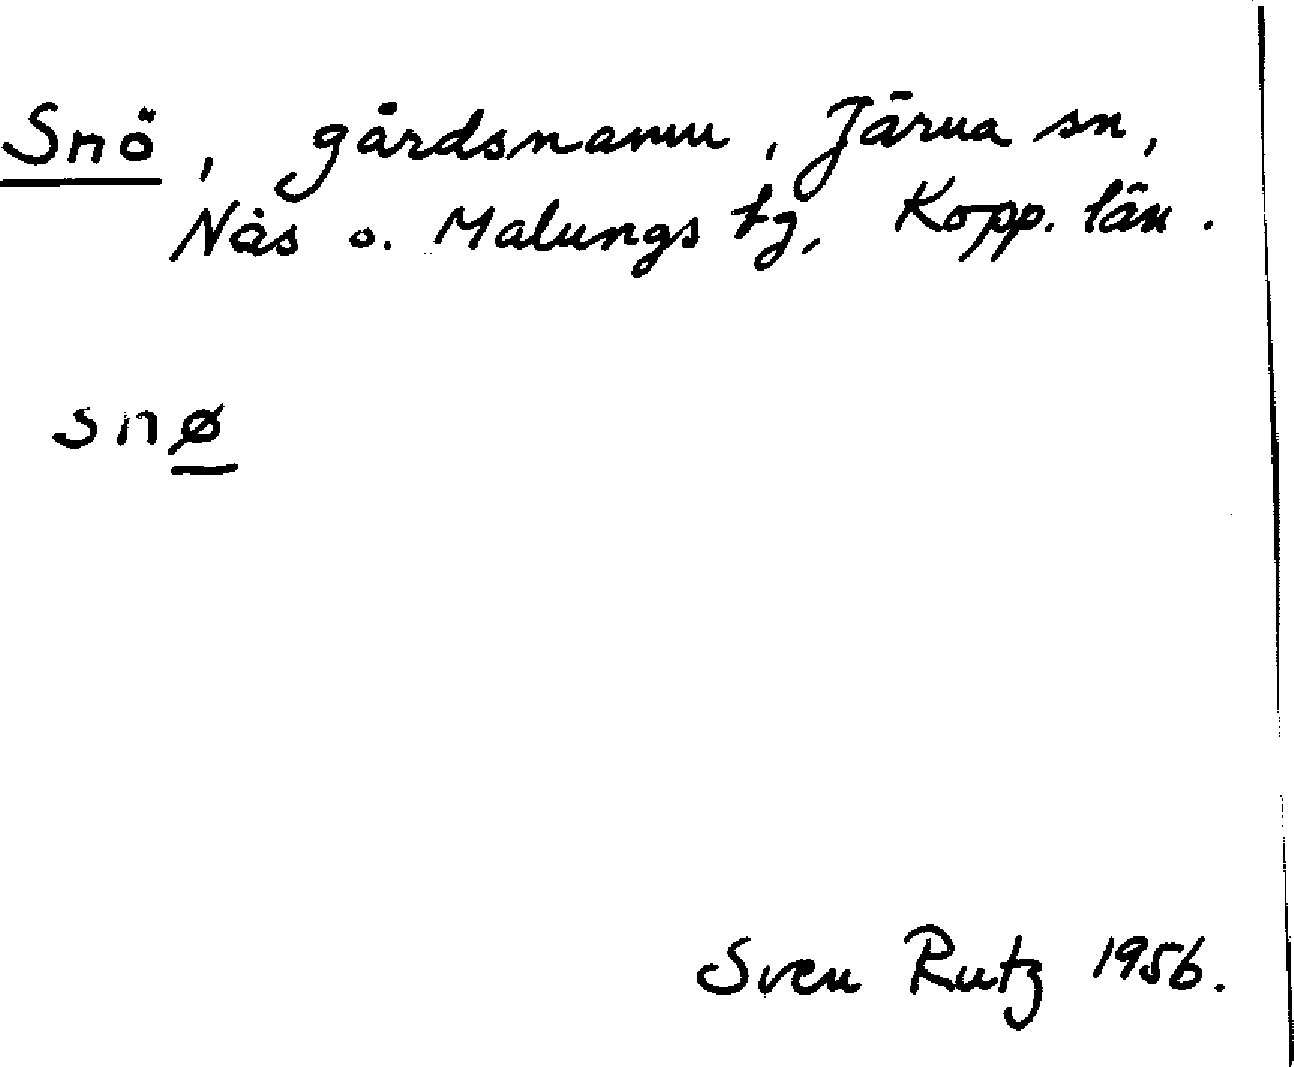 Snö, gårdsnamn, Järna sn,
Nås o. Malungs tg, Kopp. län.
snø
Sven Rutz 1956.